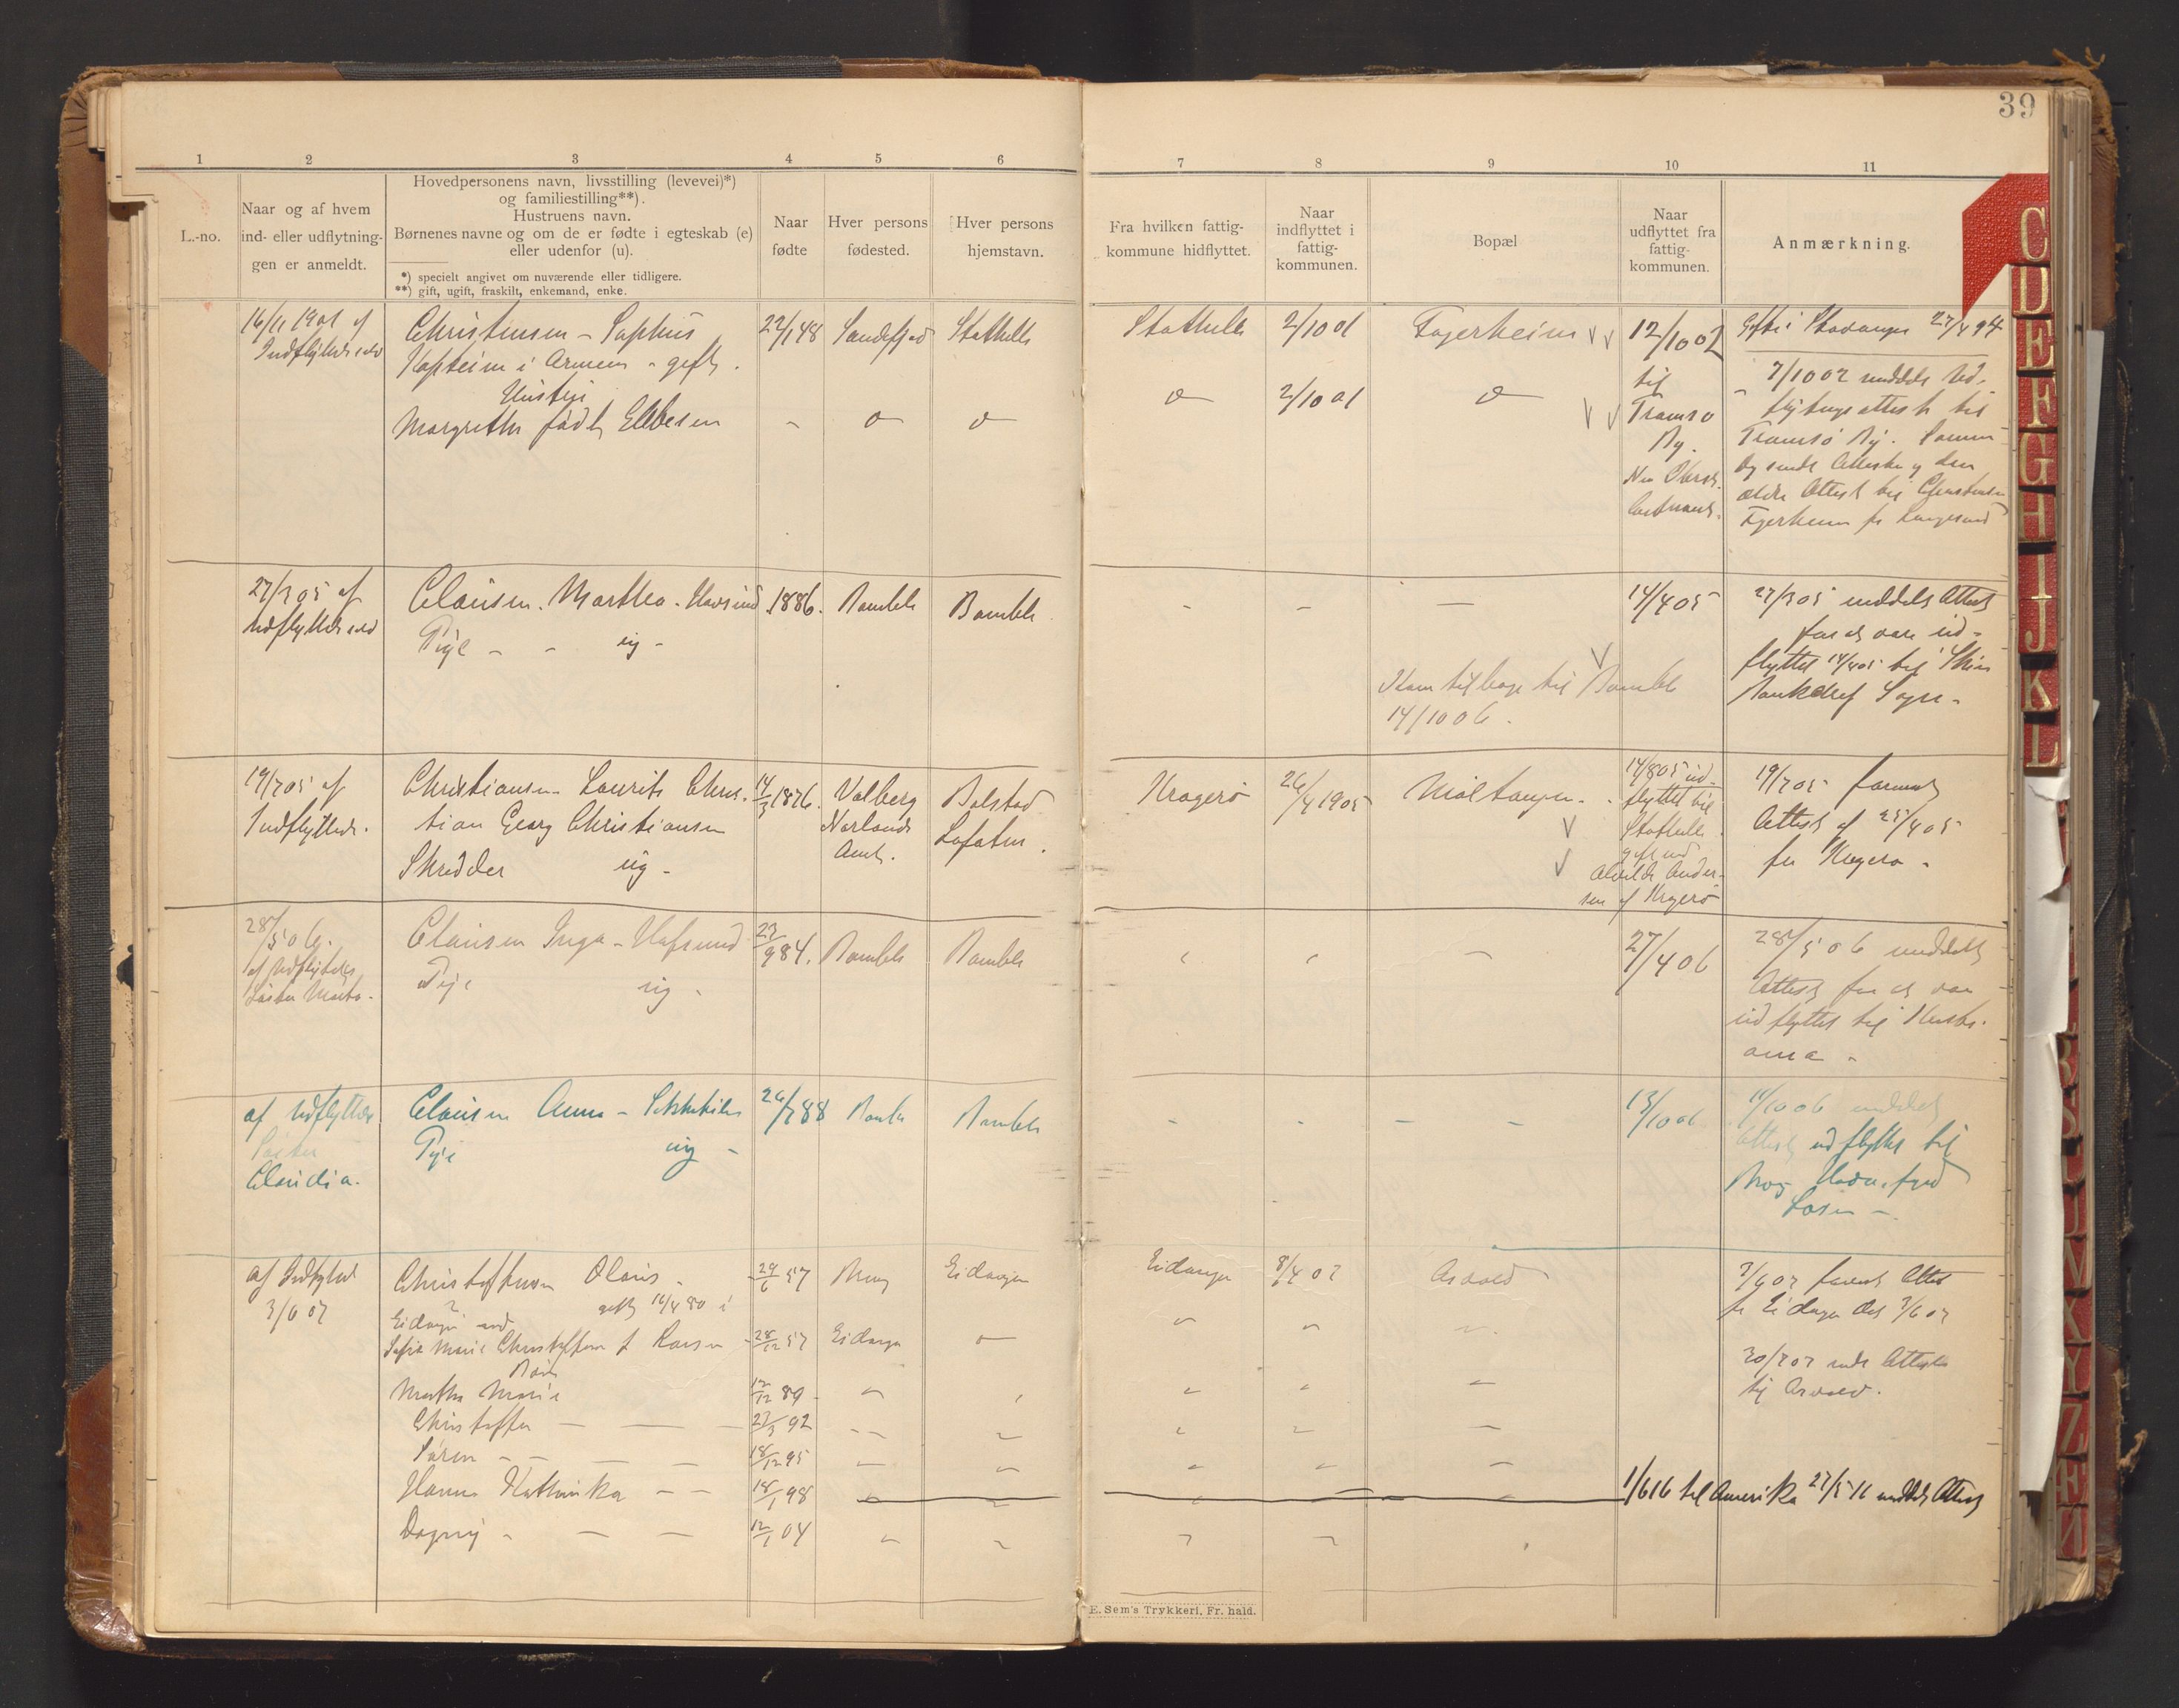 39
1 2 3 4 5 6 7 8 9 10 11
L.-no.
Naar og af hvem
ind- eller udflytnin-
gen er anmeldt.
Hovedpersonens navn, livsstilling (levevei)*)
og familiestilling**).
Hustruens navn.
Børnenes navne og om de er fødte i egteskab (e)
eller udenfor (u).
*) specielt angivet om nuværende eller tidligere.
**) gift, ugift, fraskilt, enkemand, enke.
Naar
fødte
Hver persons
fødested.
Hver persons
hjemstavn.
Fra hvilken fattig-
kommune hidflyttet.
Naar
indflyttet i
fattig-
kommunen.
Bopæl
Naar
udflyttet fra
fattig-
kommunen.
Anmærkning.
16/11 1901 af
Christensen - Sophus
Kaptein i Armeen - gift.
Hustru
Margrethe født Ebbesen
22/1 48 Sandefjord Stathelle
Stathelle 2/10 01 Fagerheim 12/10 02
2/10 01
til
Tromsø
By.
Gift i Stavanger 27/4 94
7/10 02 meddelt Ud-
flytningsattest til
Tromsø By. Samme
Dag sendt Attester og den
ældre Attest til Christensen
Fagerheim pr Langesund
27/3 05 af
Udflytteren
Clausen. Marthea - Havsund
Pige - - ug -
1886. Bamble Bamble
14/4 05
Kom tilbage til Bamble
14/10 06.
27/3 05 meddelt Attest
for at være ud-
flyttet 14/4 05 til Skien
19/7 05 af
Indflytter.
Christiansen - Laurits Chris-
tian Georg Christiansen
Skredder ug -
14/3 1876. Valberg
Norlands
Amt.
Balstad
Lofoten.
Kragerø 26/4 1905
14/8 05 ud-
flyttet til
Stathelle.
gift med
Alvilde Ander-
sen af Kragerø
19/7 05 foreviist
Attest af 25/4 05
fra Kragerø -
28/5 06.
af Udflytters
Søster
Clausen Inga - Hafsund
Pige ug -
23/9 84. Bamble Bamble
27/4 06
28/5 06 meddelt
Attest for at være
udflyttet til Kristi-
ania -
af Udflytter
Søster
Claudia.
Clausen Anna -
Pige ug -
26/7 88 Bamble Bamble
13/10 06
11/10 06 meddelt
Attest udflyttet til
af Indflytter
3/6 07
Christoffersen Olaus -
gift 16/4 80 i
Eidanger med
Sofie Marie Christoffersen f. Larsen
Børn
Martha Marie
Christoffer
Søren
Hanna Kathinka
Dagny
29/6 57 Eidanger
28/12 57 Eidanger
12/12 89
27/3 92
18/12 95
18/1 98
12/1 04
Eidanger 8/4 07 Asvold
3/6 07 foreviist Attest
fr Eidanger dat 3/6 07
30/7 07 sendt Attester
til Asvold.
1/6 16 til Amerika 27/5 16 meddelt Attest
E. Sem's Trykkeri, Fr. hald.
C
D
E
F
G
H
I
J
K
L